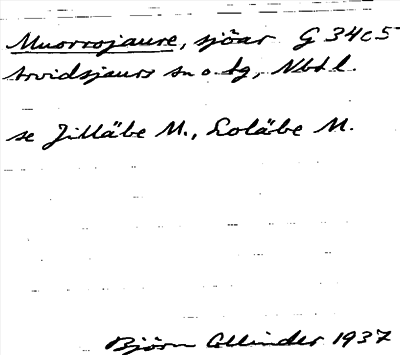 Muorrojaure, sjöar G 34c5
Arvidsjaurs sn o. tg, Nbtl.
se Jilläbe M., Loläbe M.
Björn Collinder 1937